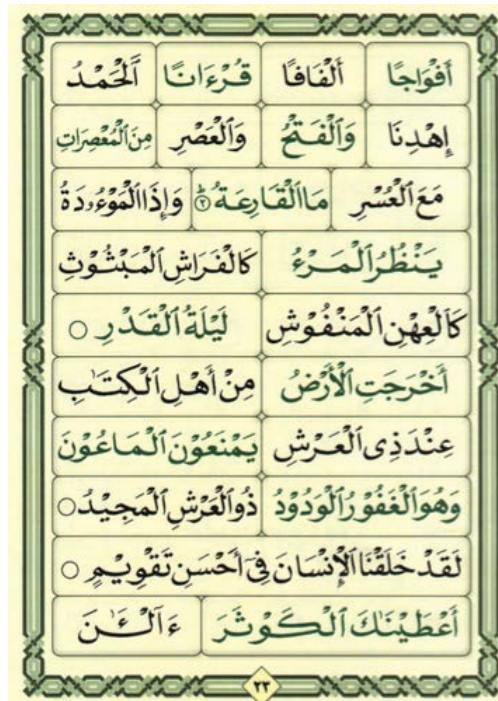 أَفْوَاجًا أَلْفَافًا قُرْءَانًا اَلْحَمْدُ
إِهْدِنَا وَالْفَتْحُ وَالْعَصْرِ مِنَ الْمُعْصِرَاتِ
مَعَ الْعُسْرِ مَا الْقَارِعَةُ ۝٢ وَإِذَا الْمَوْءُودَةُ
يَنْظُرُ الْمَرْءُ كَالْفَرَاشِ الْمَبْثُوْثِ
كَالْعِهْنِ الْمَنْفُوْشِ لَيْلَةُ الْقَدْرِ ○
أَخْرَجَتِ الْأَرْضُ مِنْ أَهْلِ الْكِتٰبِ
عِنْدَ ذِى الْعَرْشِ يَمْنَعُوْنَ الْمَاعُوْنَ
وَهُوَ الْغَفُوْرُ الْوَدُوْدُ ذُو الْعَرْشِ الْمَجِيْدُ ○
لَقَدْ خَلَقْنَا الْإِنْسَانَ فِىْ أَحْسَنِ تَقْوِيْمٍ ○
أَعْطَيْنٰكَ الْكَوْثَرَ ءَآلْـٰٔنَ
٢٣